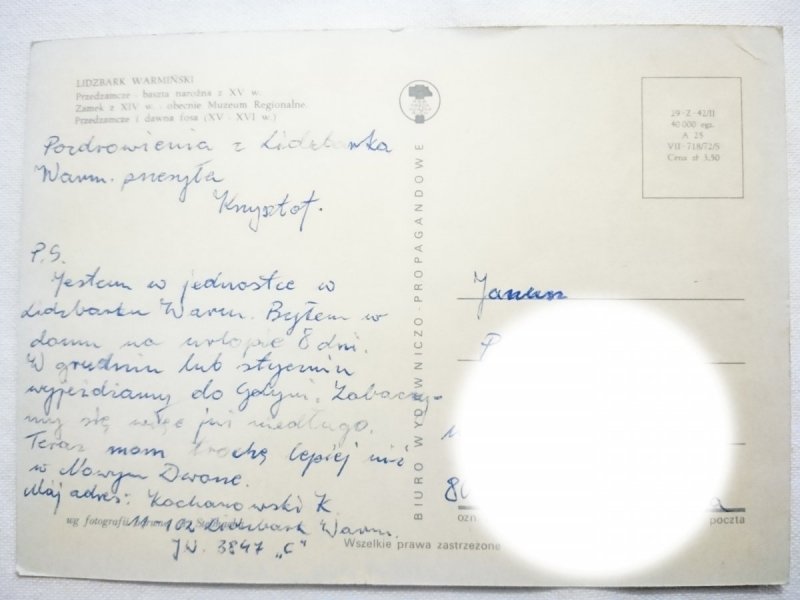 LIDZBARK WARMIŃSKI
Przedzamcze - baszta narożna z XV w.
Zamek z XIV w. - obecnie Muzeum Regionalne.
Przedzamcze i dawna fosa (XV - XVI w.)
Pozdrowienia z Lidzbarka
Warm. przesyła
Krzysztof.
P.S.
Jestem w jednostce w
Lidzbarku Warm. Byłem w
domu na urlopie 8 dni.
W grudniu lub styczniu
wyjeżdżamy do Gdyni. Zobaczy-
my się więc już niedługo.
Teraz mam trochę lepiej niż
w Nowym Dworze.
Mój adres: Kochanowski K.
11-102 Lidzbark Warm.
JW. 3847 „C"
wg fotografii
Wszelkie prawa zastrzeżone
BIURO WYDAWNICZO-PROPAGANDOWE
29-Z-42/II
40 000 egz.
A 25
VII-718/72/S
Cena zł 3,50
Janusz
P
80
poczta